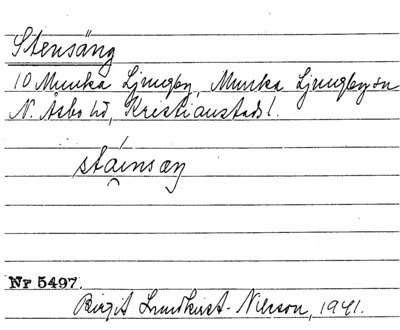 Stensäng
10 Munka Ljungby, Munka Ljungby sn
N. Åsbo hd, Kristianstads l.
stáinsæŋ
Nr 5497.
Birgit Lundkvist-Nilsson, 1941.